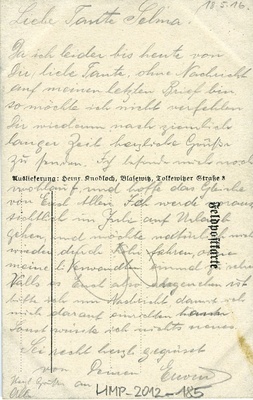 18.5.16.
Liebe Tante Selma.
Da ich leider bis heute von
Dir, liebe Tante, ohne Nachricht
auf meinen letzten Brief bin
so möchte ich nicht verfehlen
Dir wiederum nach ziemlich
langer Zeit herzliche Grüße
zu senden. Ich befinde mich noch
Auslieferung: Henr. Knobloch, Blasewitz, Tolkewitzer Straße 8
wohlauf, und hoffe das Gleiche
von Euch Allen. Ich werde voraus
sichtlich im Juli auf Urlaub
gehen, und möchte natürlich
wieder durch Köln fahren, ohne
meine Verwandte einmal zu
Falls es Euch also angenehm ist
bitte ich um Nachricht damit ich
mich darauf einrichten kann
Sonst wüsste ich nichts neues.
Sei recht herzl. gegrüsst
von Deinem Erwin
Herzl. Grüße an
Alle
Feldpostkarte
LHMP-2012-185